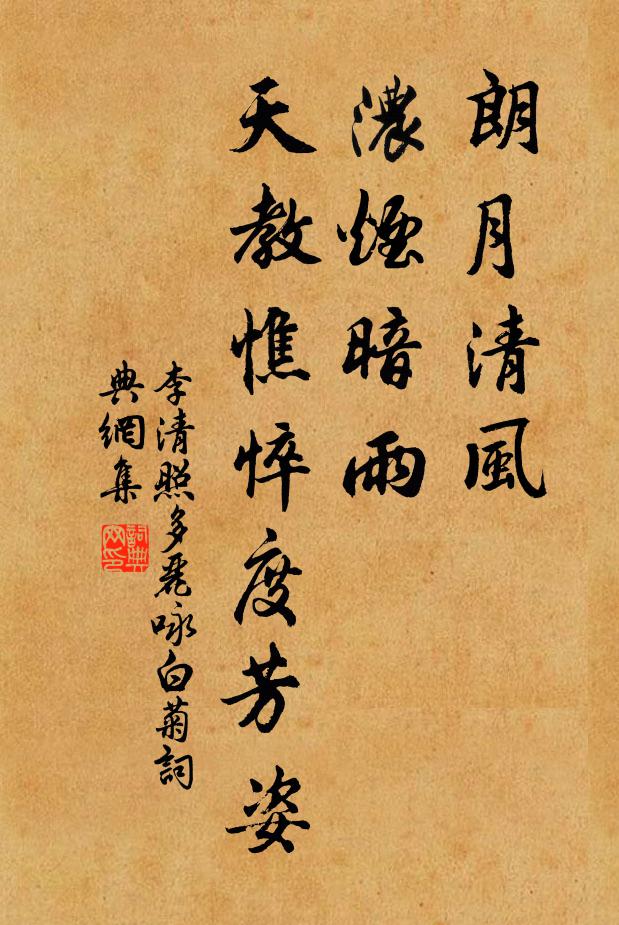 朗月清風
濃煙暗雨
天教憔悴度芳姿
李清照多麗咏白菊詞
典網集
詞典网印